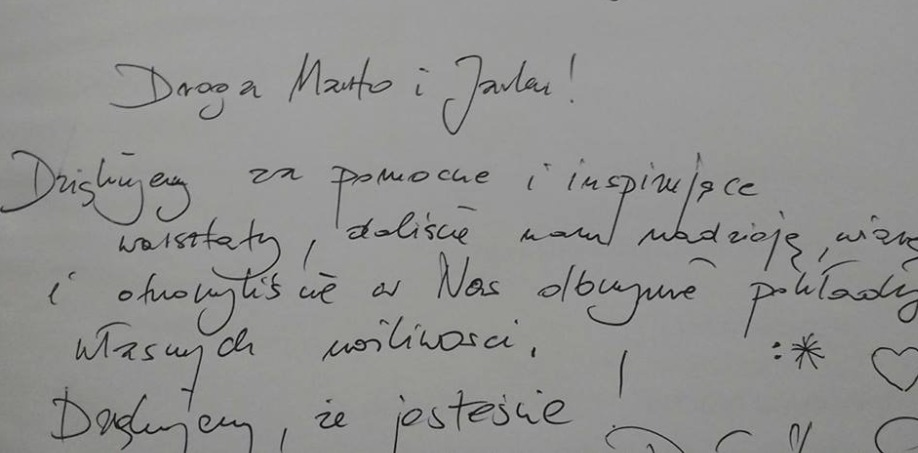 Droga Marto i
Dziękujemy za pomocne i inspirujące
warsztaty, daliście nam nadzieję, wiarę
i otworzyliście w Nas olbrzymie pokłady
własnych możliwości.
:* ♡
Dziękujemy, że jesteście!